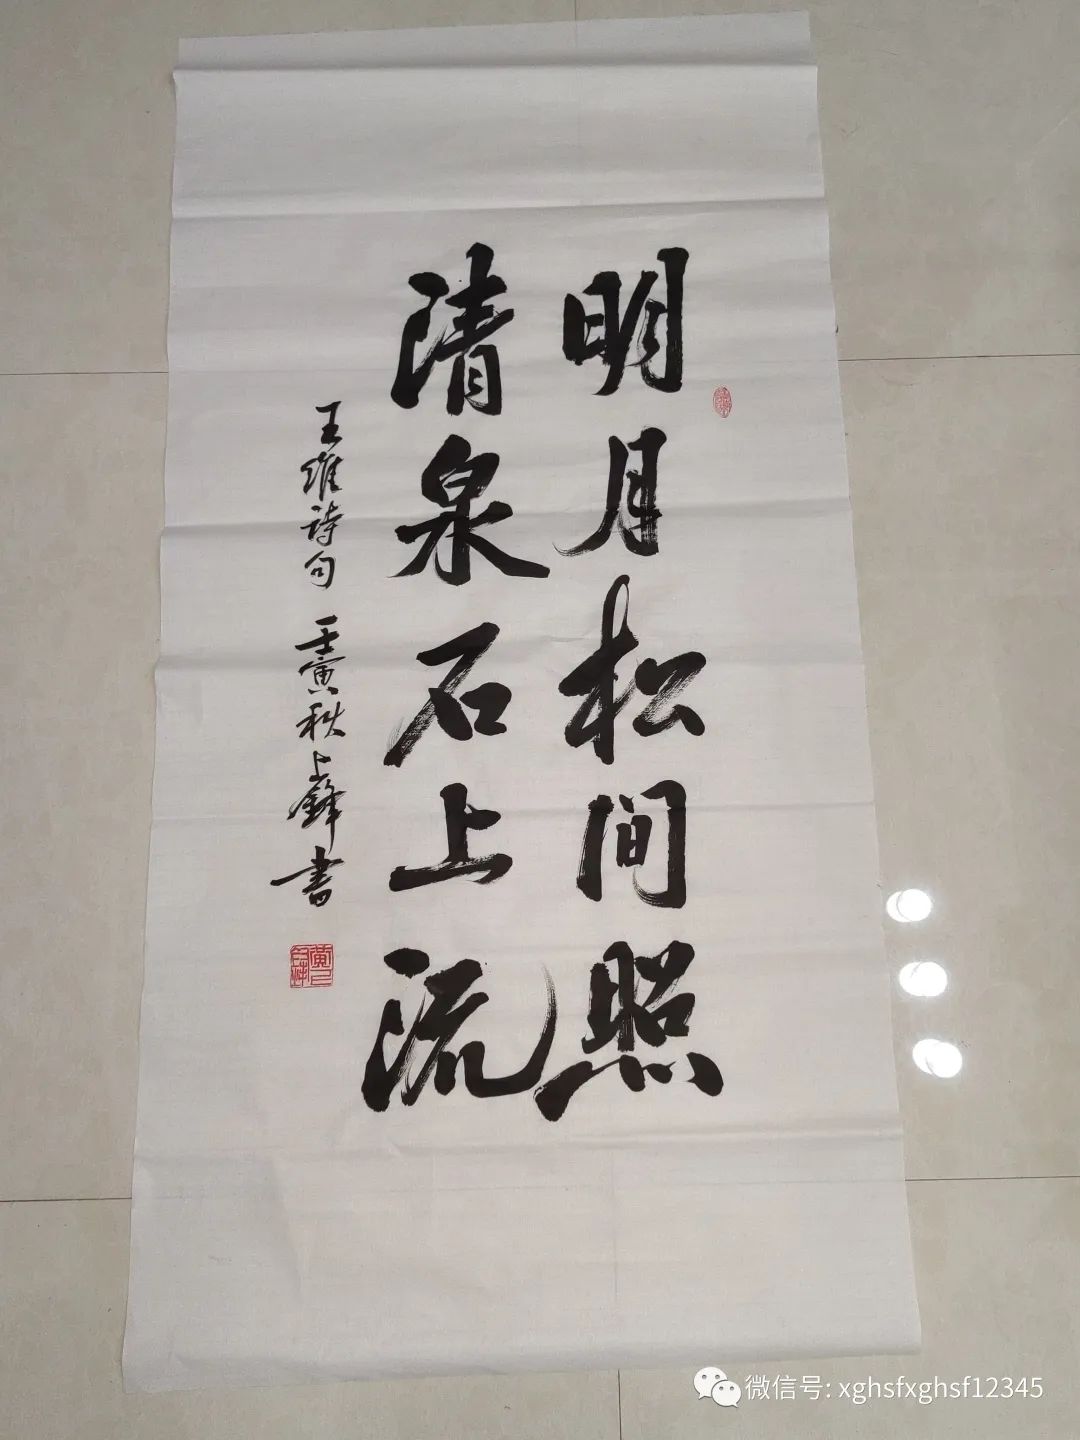 明月松间照
清泉石上流
王维诗句 壬寅秋上鋒書
微信号: xghsfxghsf12345